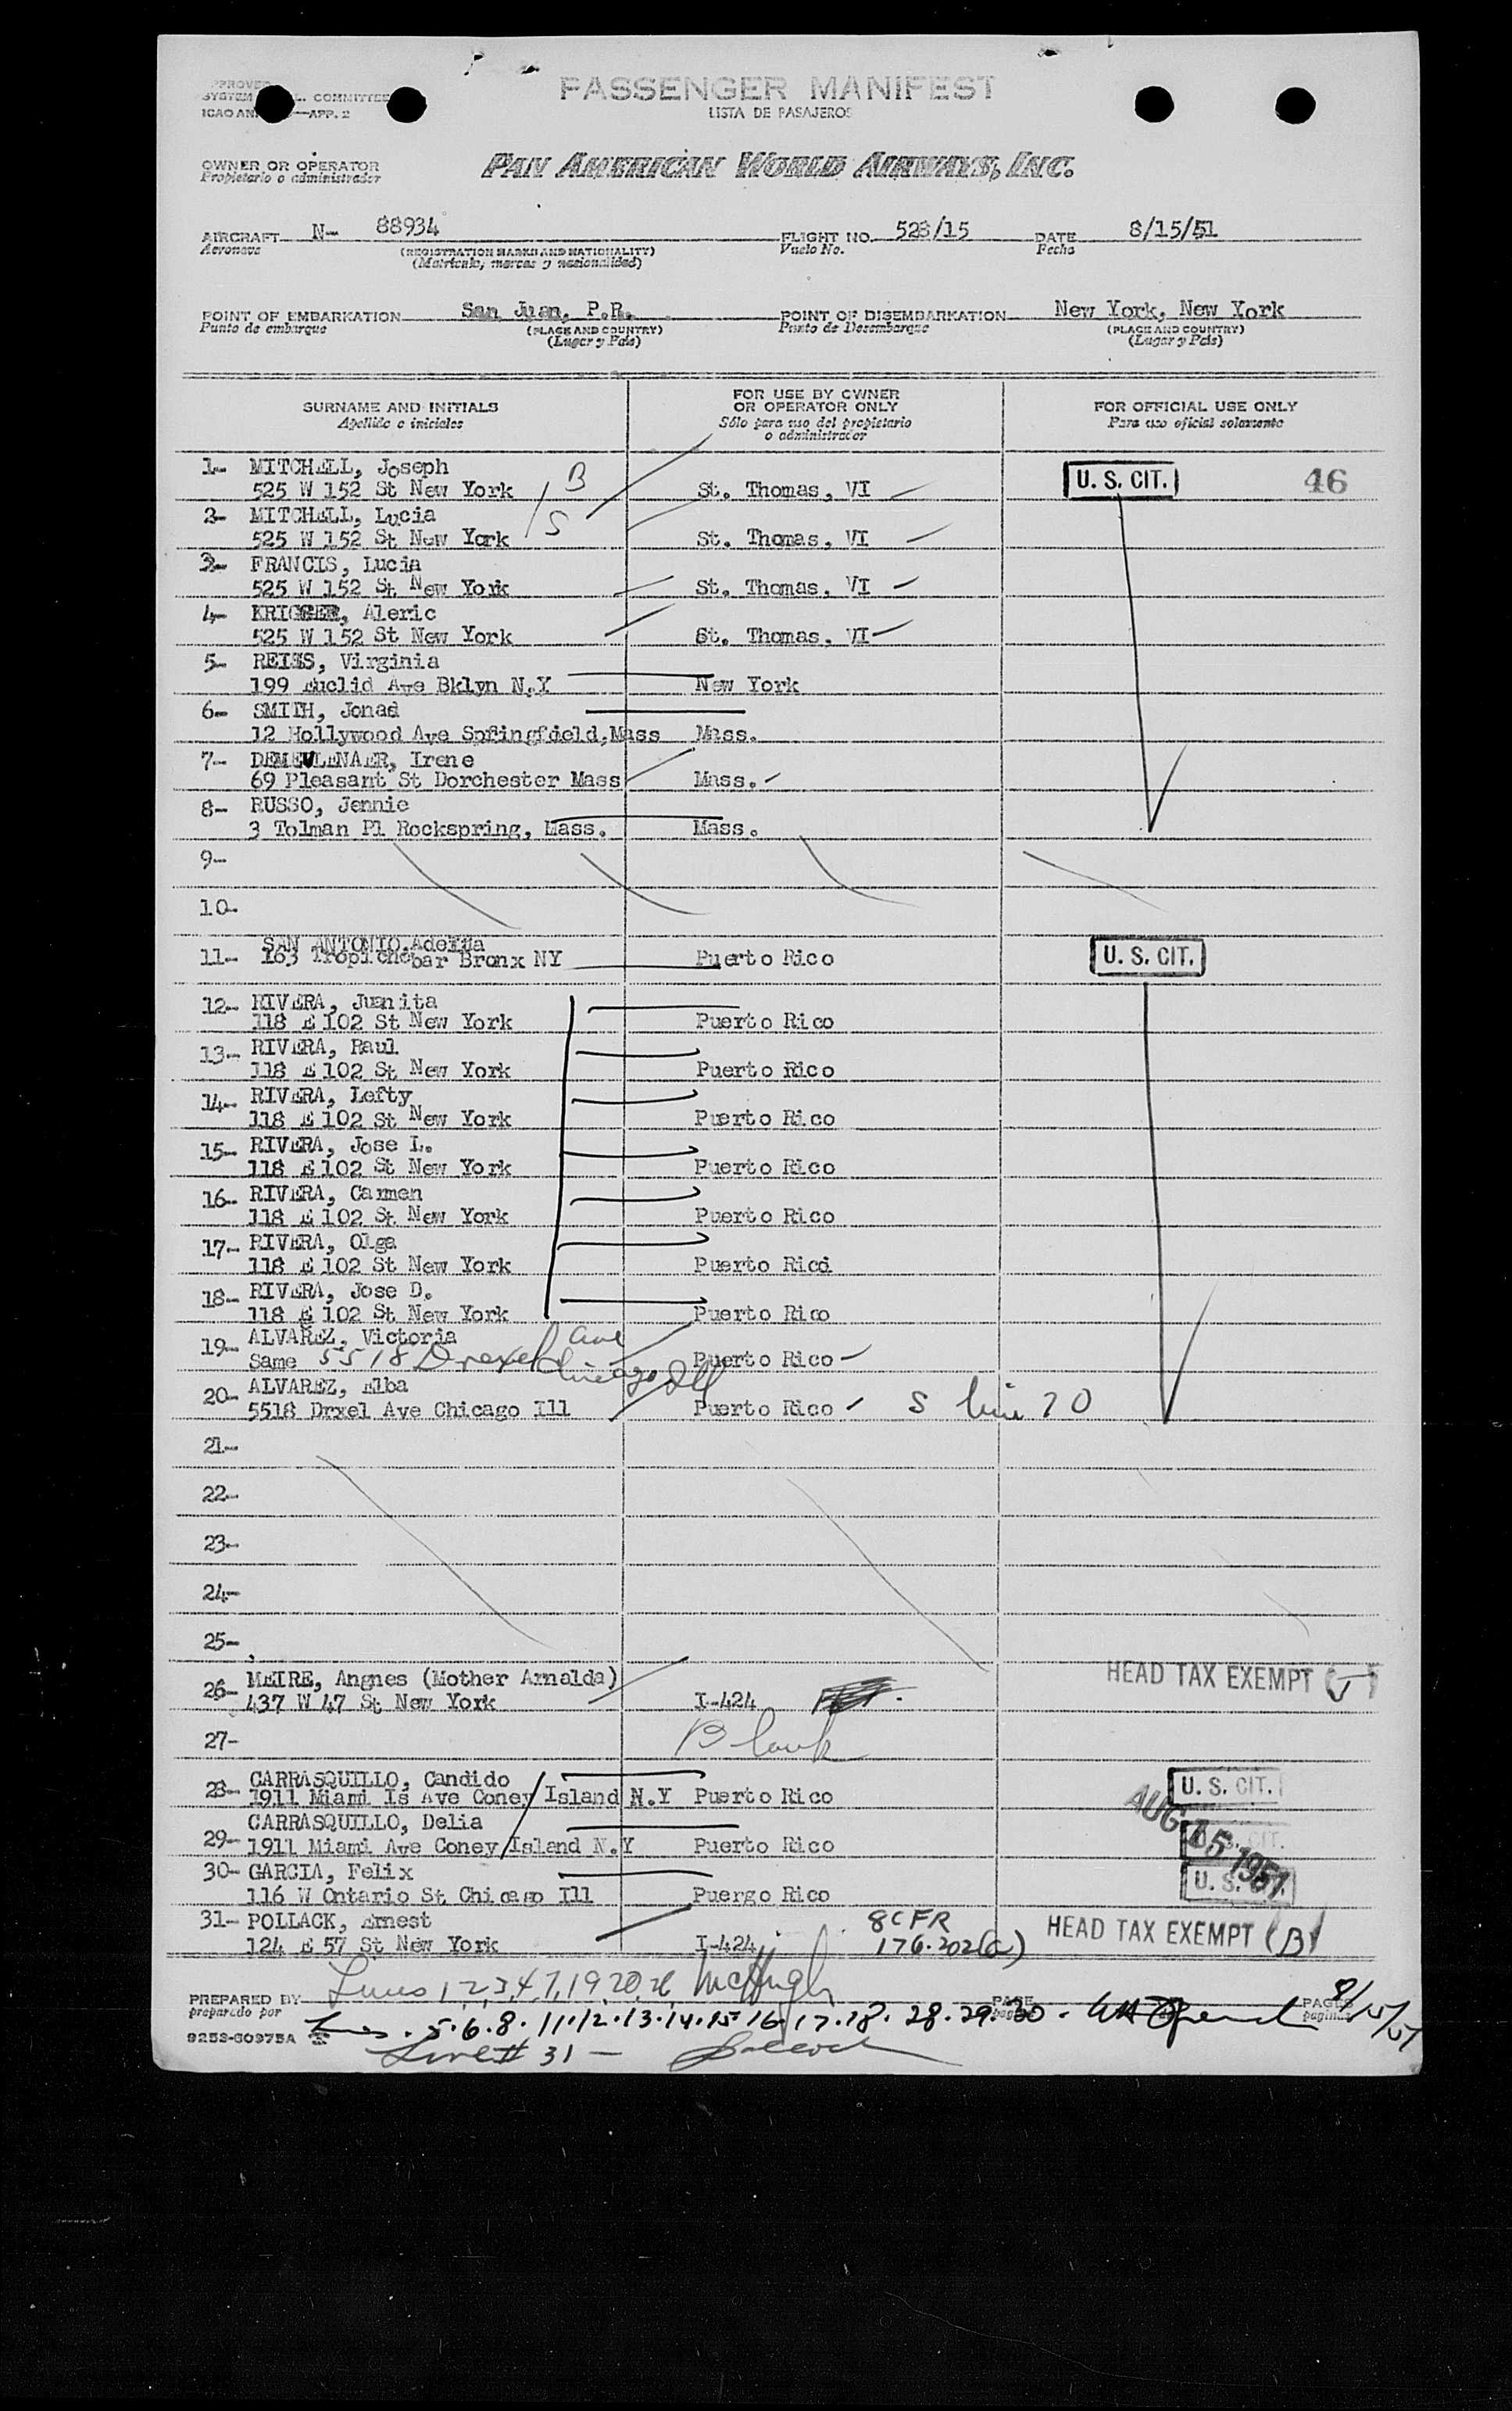 PASSENGER MANIFEST
LISTA DE PASAJEROS
COMMITTEE
APP. 2
OWNER OR OPERATOR
Propietario o administrador
PAN AMERICAN WORLD AIRWAYS, INC.
AIRCRAFT N- 88934 FLIGHT NO. 528/15 DATE 8/15/51
Aeronave (REGISTRATION MARKS AND NATIONALITY) Vuelo No. Fecha
(Matricula, marcas y nacionalidad)
POINT OF EMBARKATION San Juan, P.R. POINT OF DISEMBARKATION New York, New York
Punto de embarque (PLACE AND COUNTRY) Punto de Desembarque (PLACE AND COUNTRY)
(Lugar y País) (Lugar y País)
SURNAME AND INITIALS FOR USE BY OWNER OR OPERATOR ONLY FOR OFFICIAL USE ONLY
Apellido e iniciales Sólo para uso del propietario o administrador Para uso oficial solamente
1- MITCHELL, Joseph B U. S. CIT. 46
525 W 152 St New York St. Thomas, VI
2- MITCHELL, Lucia S
525 W 152 St New York St. Thomas, VI
3- FRANCIS, Lucia
525 W 152 St New York St. Thomas, VI
4- KRIGGER, Aleric
525 W 152 St New York St. Thomas, VI
5- REISS, Virginia
199 Euclid Ave Bklyn N.Y New York
6- SMITH, Jonad
12 Hollywood Ave Springfield, Mass Mass.
7- DEMEULENAER, Irene
69 Pleasant St Dorchester Mass Mass.
8- RUSSO, Jennie
3 Tolman Pl Rockspring, Mass. Mass.
9-
10-
SAN ANTONIO, Adelina
11- 163 Bronx NY Puerto Rico U. S. CIT.
12- RIVERA, Juanita
118 E 102 St New York Puerto Rico
13- RIVERA, Raul
118 E 102 St New York Puerto Rico
14- RIVERA, Lefty
118 E 102 St New York Puerto Rico
15- RIVERA, Jose L.
118 E 102 St New York Puerto Rico
16- RIVERA, Carmen
118 E 102 St New York Puerto Rico
17- RIVERA, Olga
118 E 102 St New York Puerto Rico
18- RIVERA, Jose D.
118 E 102 St New York Puerto Rico
19- ALVAREZ, Victoria
Same 5518 Drexel Ave Chicago Ill Puerto Rico
20- ALVAREZ, Elba
5518 Drxel Ave Chicago Ill Puerto Rico S line 20
21-
22-
23-
24-
25-
26- MEIRE, Angnes (Mother Arnalda) HEAD TAX EXEMPT
437 W 47 St New York I-424
27- Blank
28- CARRASQUILLO, Candido U. S. CIT.
1911 Miami Is Ave Coney Island N.Y Puerto Rico
AUG 15 1951
CARRASQUILLO, Delia U. S. CIT.
29- 1911 Miami Ave Coney Island N.Y Puerto Rico
30- GARCIA, Felix U. S. CIT.
116 W Ontario St Chicago Ill Puergo Rico
31- POLLACK, Ernest 8 CFR HEAD TAX EXEMPT (B)
124 E 57 St New York I-424 176.202(a)
Lines 1,2,3,4,7,19,20,26 McHugh
PREPARED BY PAGE PAGES
preparado por pagina paginas
Lines. 5.6.8. 11.12.13.14.15.16.17.18. 28.29.30. 8/15/51
9253-60975A
Line # 31 -